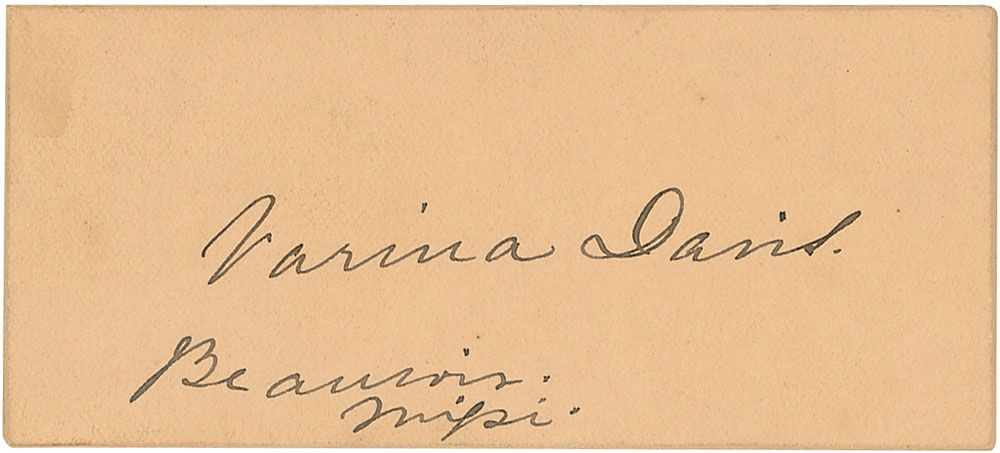 Varina Davis.
Beauvoir.
Mifsi.